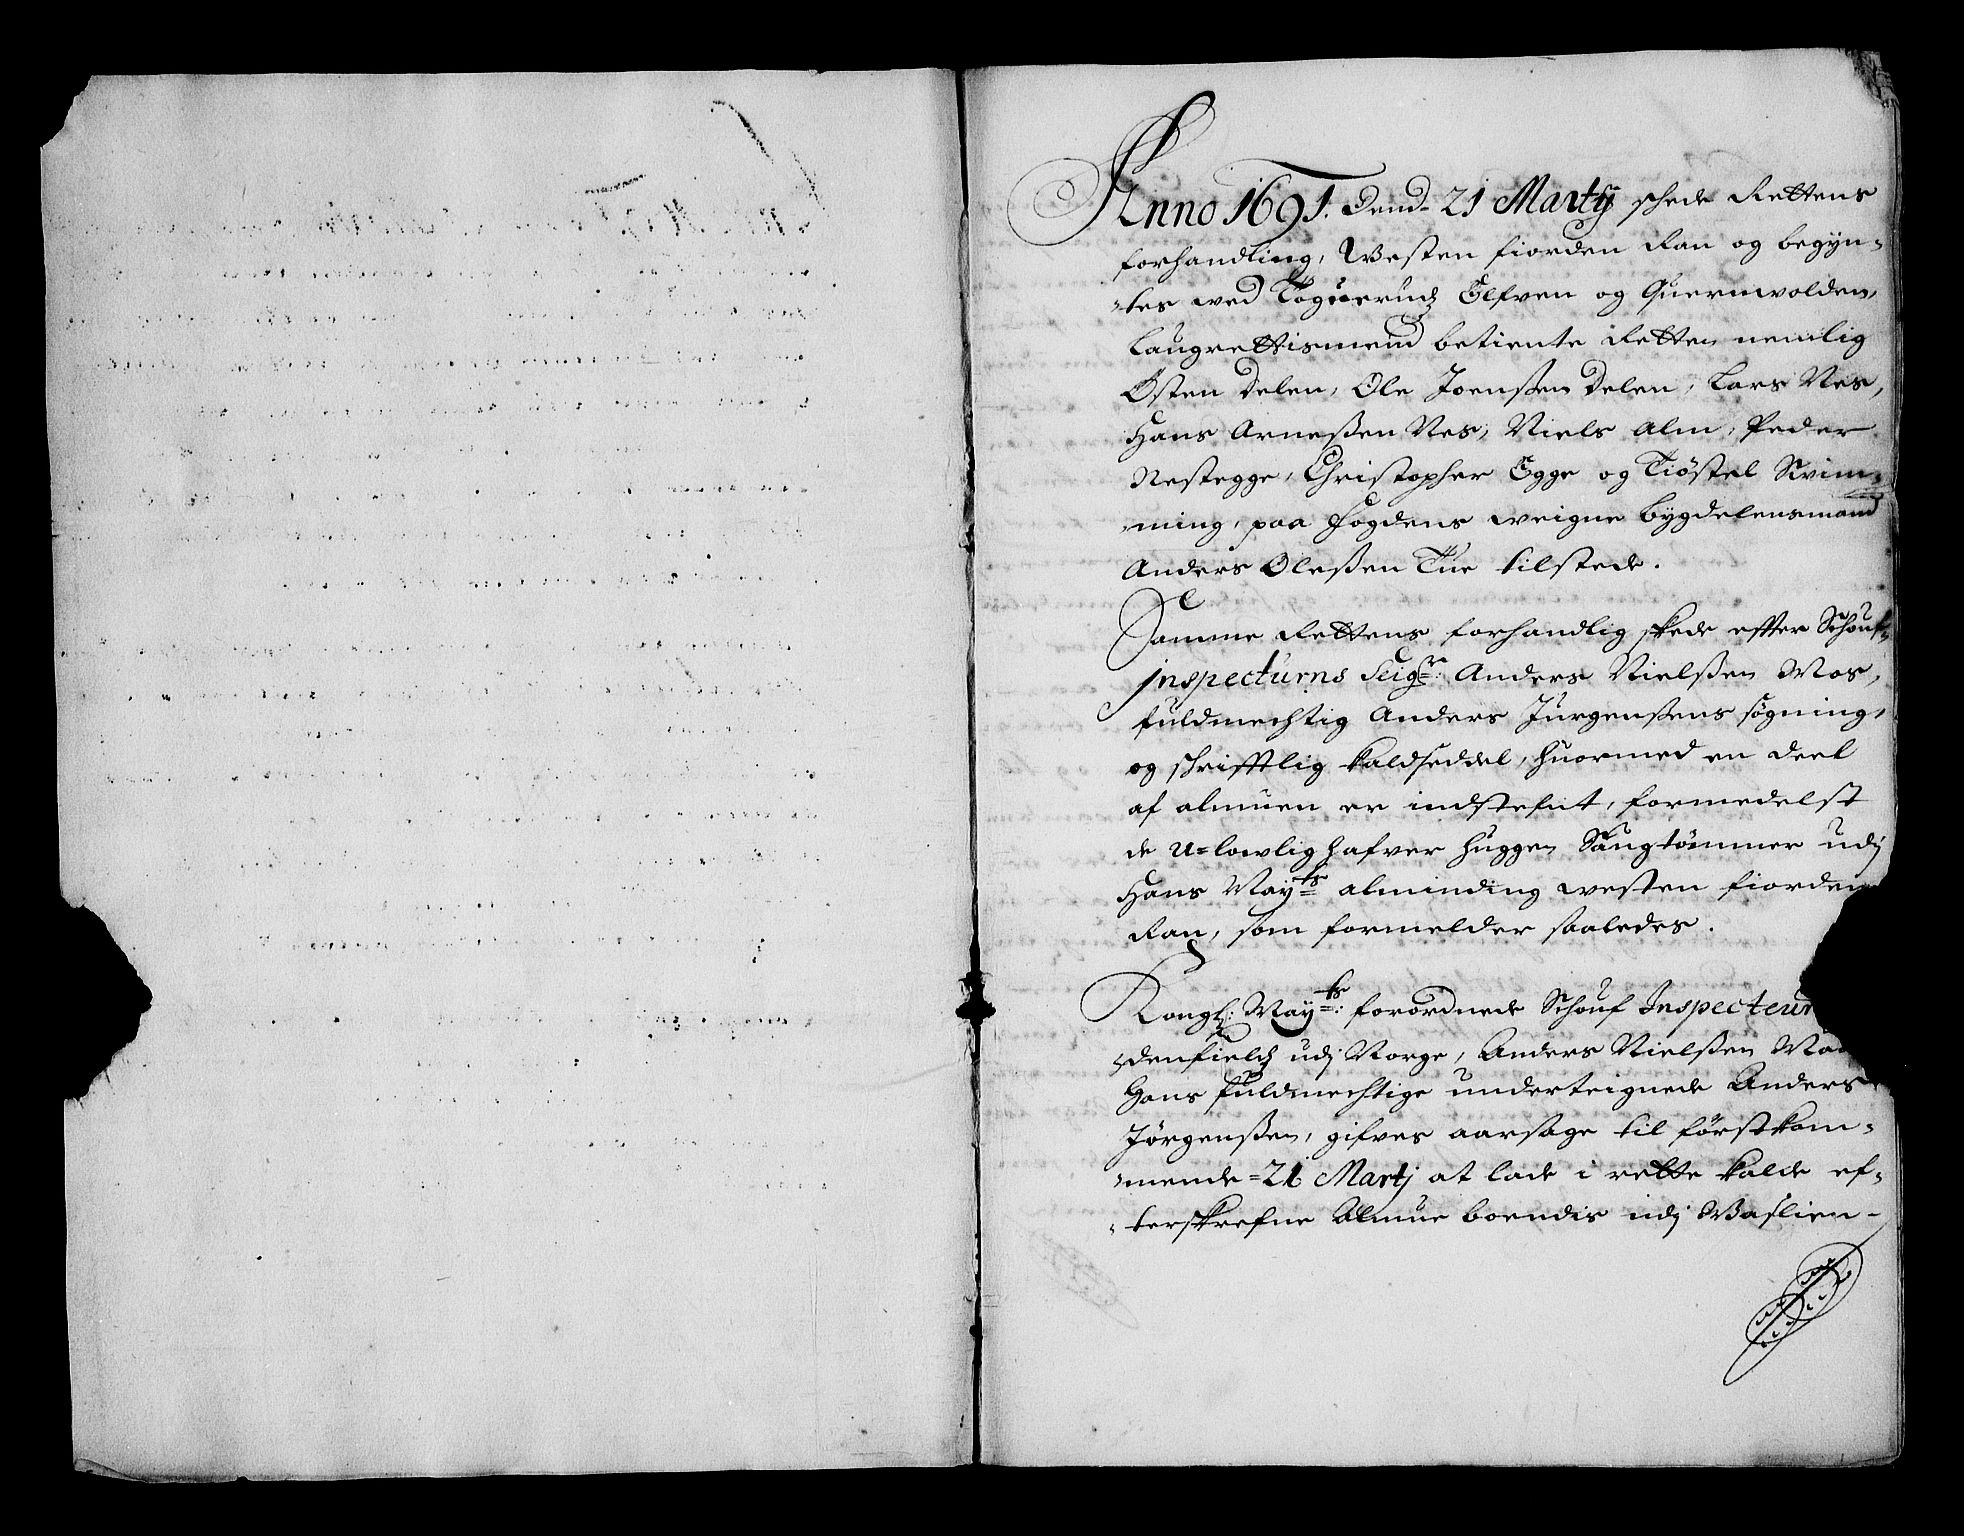 Anno 1691. Dend 21 Martij schede Rettens
forhandling, Westen fiorden Ran og begÿn-
-tes wed Toguerudz Elfven og Quernvolden,
Laugrettismend betiente Retten nemlig
Østen Delen, Ole Joenßen Delen, Lars Nes,
Hans Arneßen Nes, Niels Alm, Peder
Nestegge, Christopher Egge og Tiøstel Svim-
-ming, paa Fogdens weigne bÿgdelensmand
Anders Oleßen Tue tilstede.
Samme Rettens forhandlig skede effter Schouf-
Inspecturns Seigr: Anders Nielßen Mos,
fuldmechtig Anders Jürgenßens søgning,
og schrifftlig kaldseddel, huormed en deel
af almuen er indstefnt, formedelst
de u-lowlig hafver huggen Saugtömmer udj
Hans Mayts alminding westen fiorden
Ran, som formelder saaledes.
Kongl: Mayts: forordnede Schouf Inspecteur
denfields udj Norge, Anders Nielßen
Hans fuldmechtige underteignede Anders
Jørgenßen, gifves aarsage til förstkom-
-mende 21 Martj at lade i rette kalde ef-
-terskrefne Almue boendis udj Waslien-